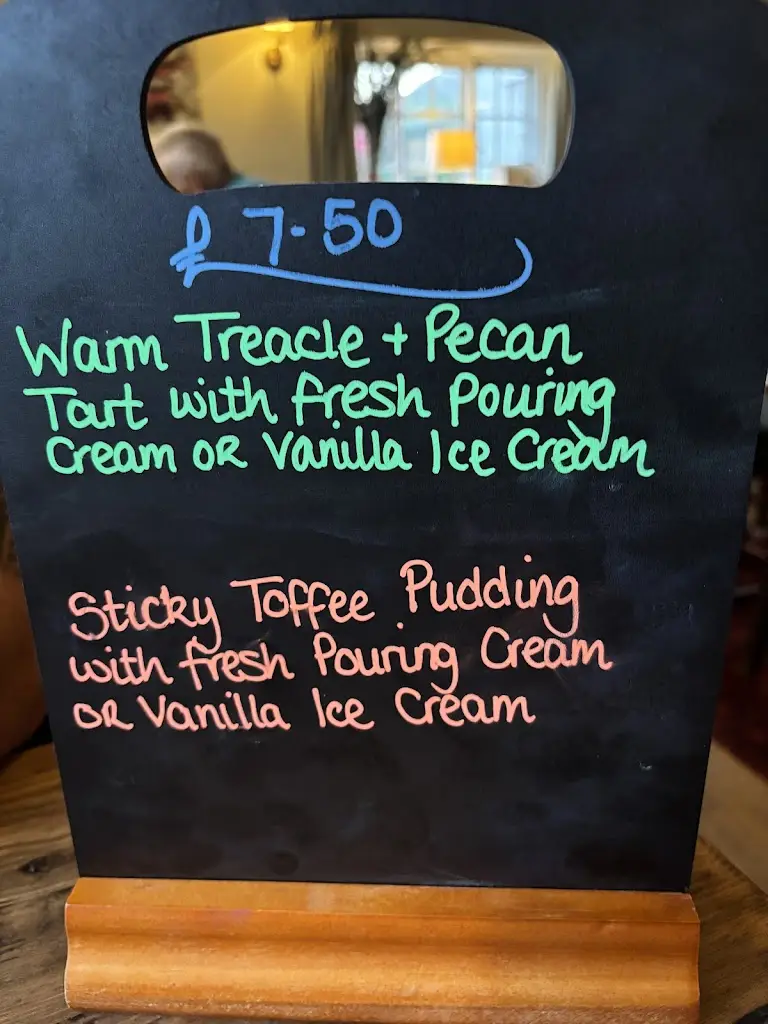 £7.50
Warm Treacle + Pecan
Tart with fresh Pouring
Cream OR Vanilla Ice Cream
Sticky Toffee Pudding
with fresh Pouring Cream
OR Vanilla Ice Cream